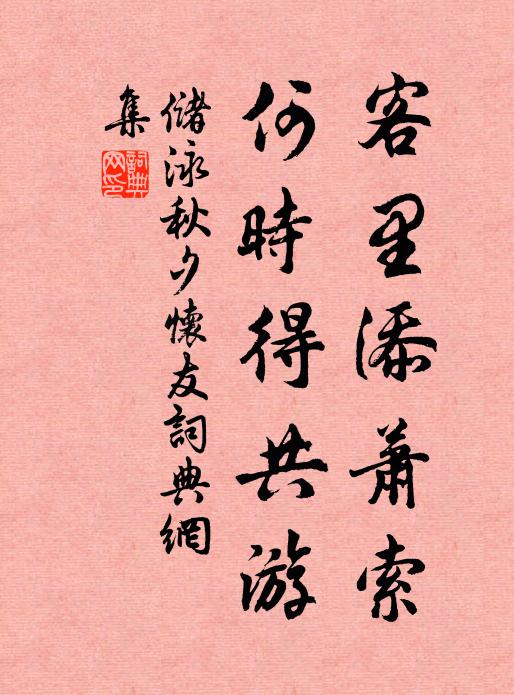 客里添蕭索
何時得共游
儲泳秋夕懷友詞典網
集
詞典网印